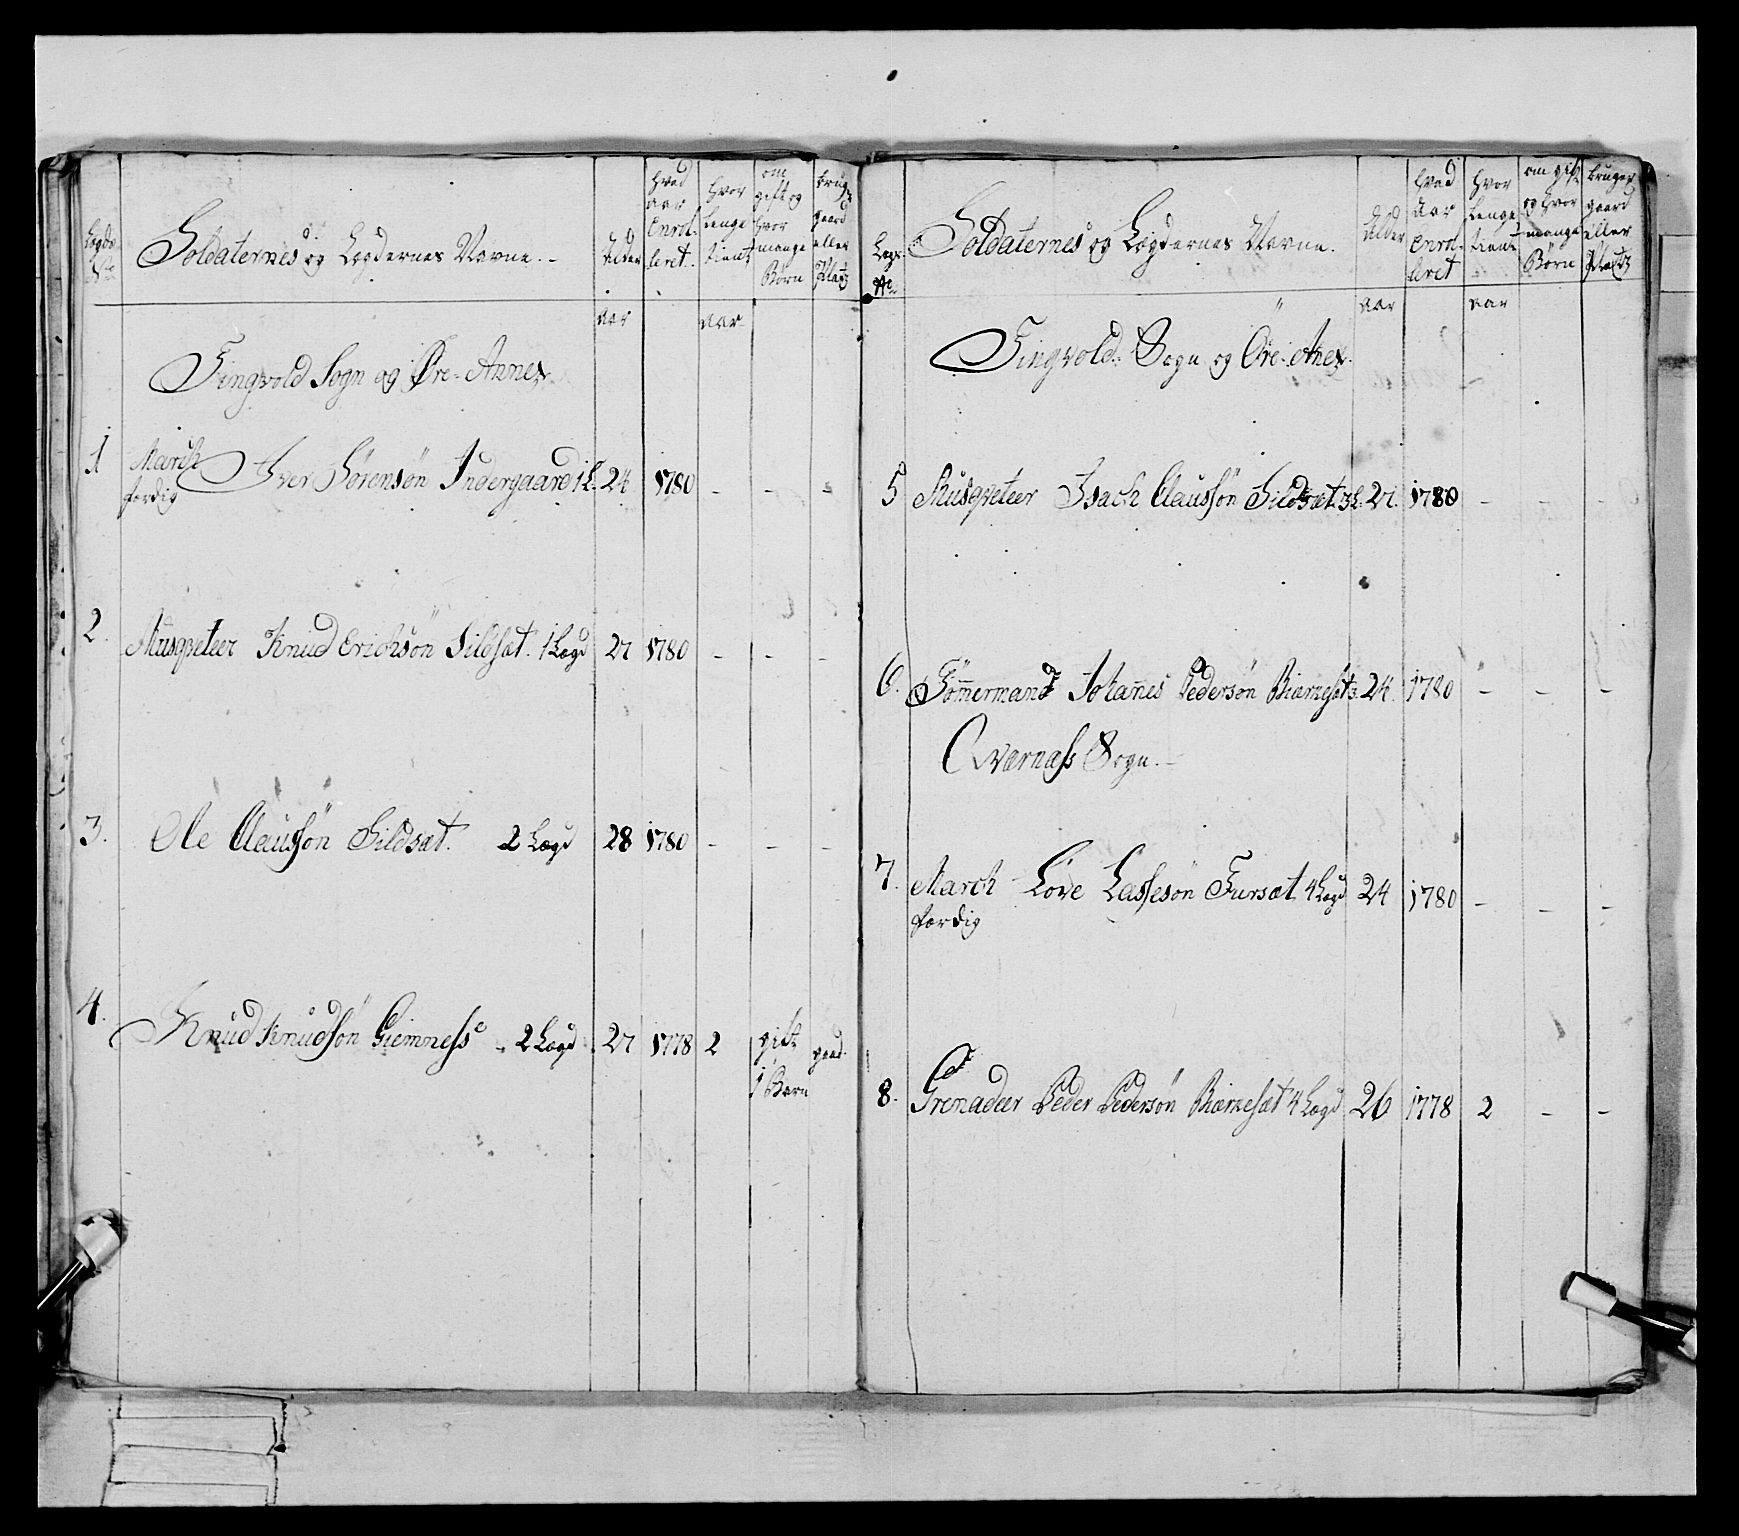 Lægds No
Soldaternes og Lægdernes Navne.
Alder
hvad aar Enrol-leret.
hvor lenge tient
om gift og hvor mange Børn
bruger gaard eller Pladtz
aar
aar
Tingvold Sogn og Øre-Annex
1 March færdig Iver Sørensøn Indergaard 1 L. 24 1780 - - -
2. Musqveteer Knud Erichsøn Sildsæt. 1 Lægd 27 1780 - - -
3. Ole Claussøn Sildsæt. 2 Lægd 28 1780 - - -
4. Knud Knudsøn Giemness 2 Lægd 27 1778 2 gift 1 Barn gaard.
Lægs No
Soldaternes og Lægdernes Navne.
Alder
hvad Aar Enrol-leret
hvor lenge tient
om gift og hvor mange Børn
bruger gaard eller Pladtz
aar
aar
Tingvold Sogn og Öre-Anex.
5 Musqveteer Isach Claussøn Sildsæt. 3 L. 27. 1780 - -
6. Tömmermand Johannes Pedersøn Biærkesæt 3. 24. 1780 - - -
Qværness Sogn.
7. March færdig Love Lassesøn Fursæt 4 Lægd 24 1780 - - -
8. Grenadeer Peder Pedersøn Biærkesæt 4 Lægd 26 1778 2 - -